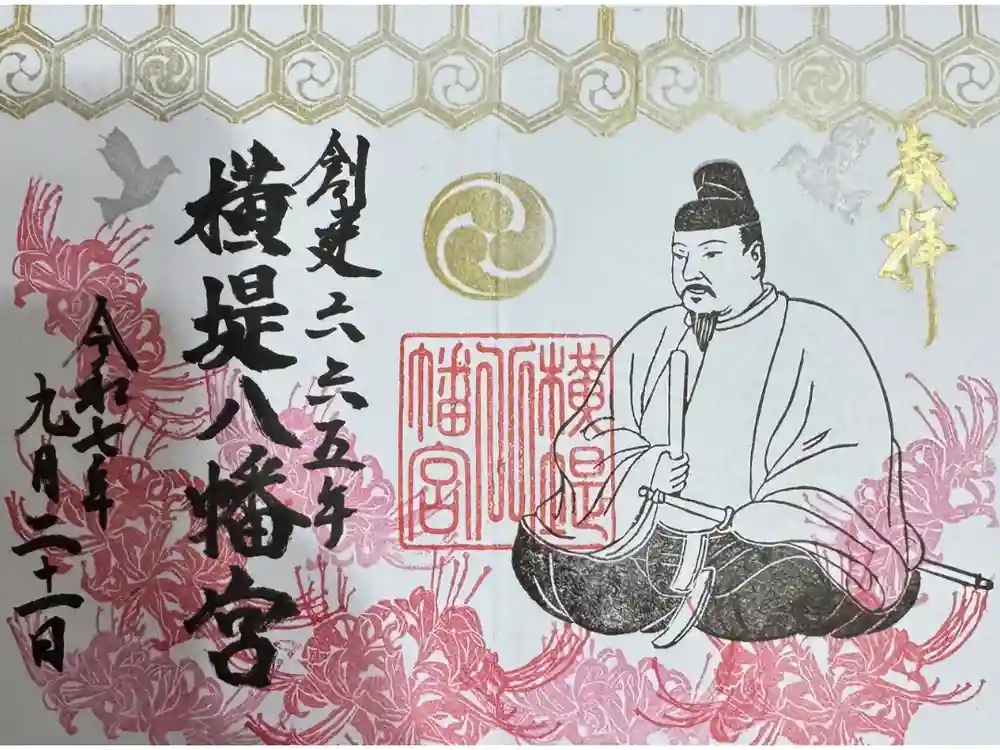 奉拝
横堤八幡宮
創建六六五年
横堤八幡宮
令和七年
九月二十一日